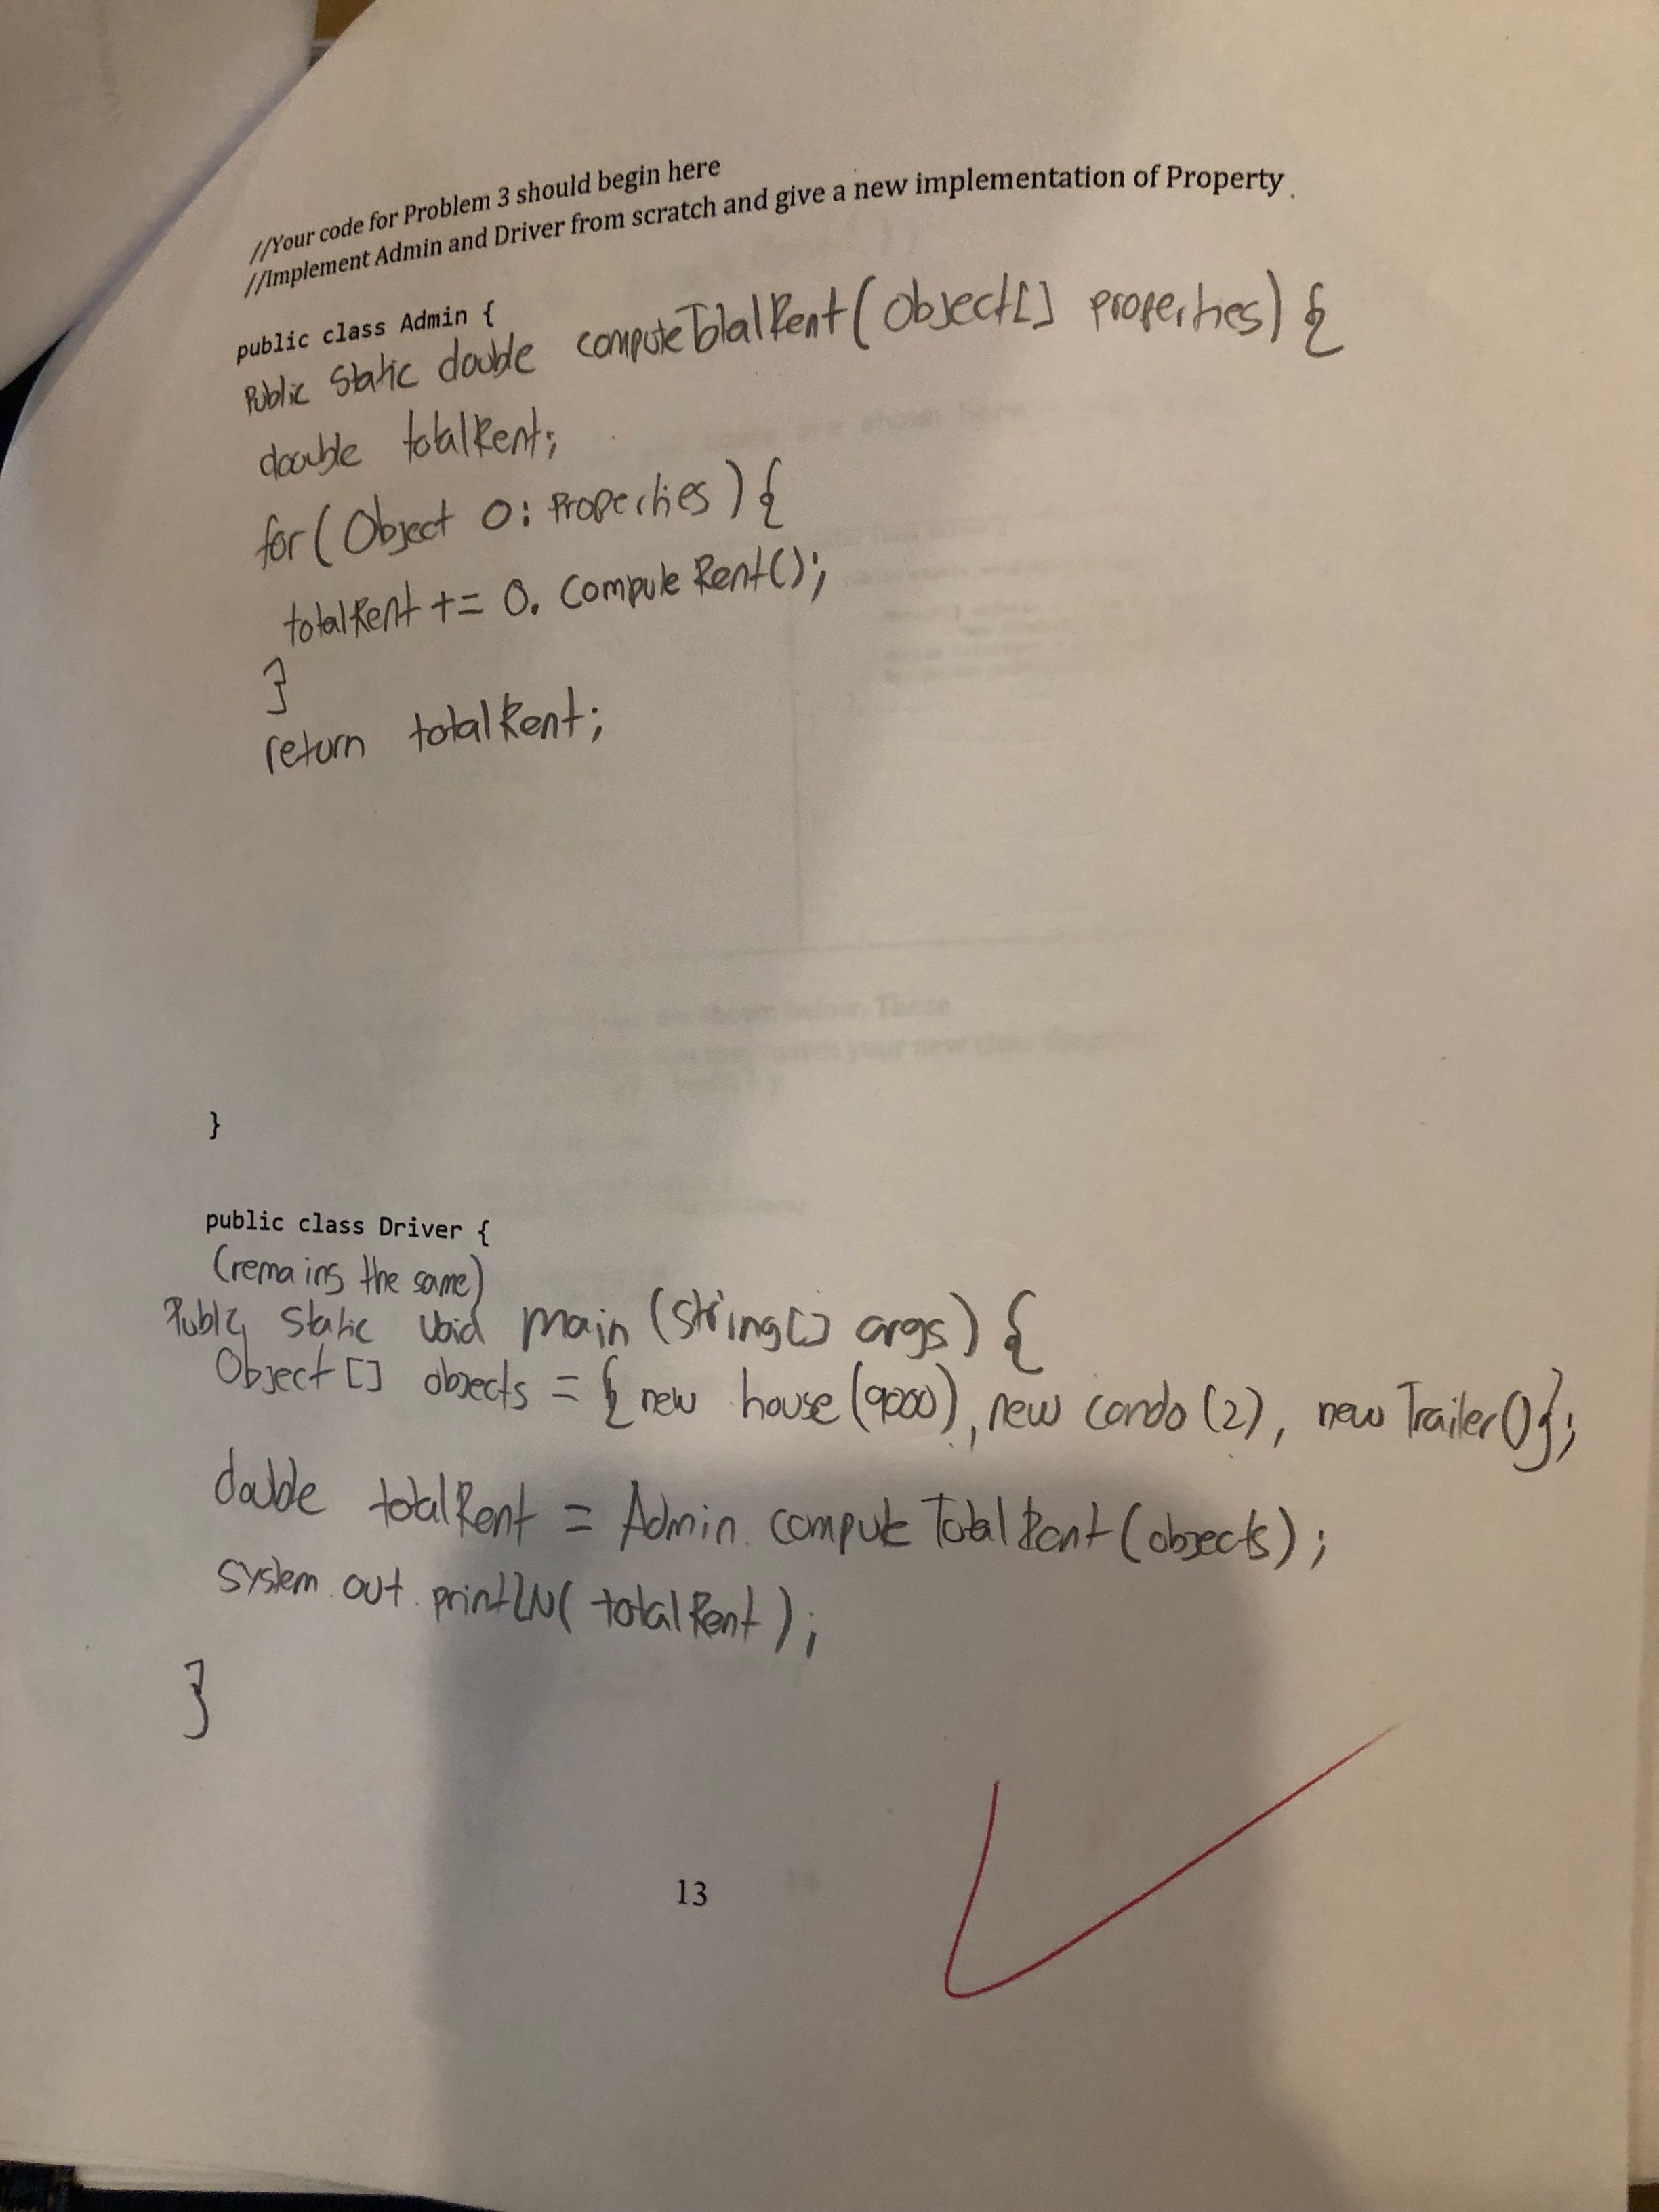 //Your code for Problem 3 should begin here
//Implement Admin and Driver from scratch and give a new implementation of Property
public class Admin {
Public Static double computeTotalRent(Object[] properties) {
double totalRent;
for(Object O: Properties) {
totalRent += O. Compute Rent();
}
return totalRent;
}
public class Driver {
(remains the same)
Public static void main (string[] args) {
Object [] objects = { new house (9000), new condo (2), new Trailer()};
double totalRent = Admin. compute Total Rent (objects);
system. out. printLN( totalRent );
}
13